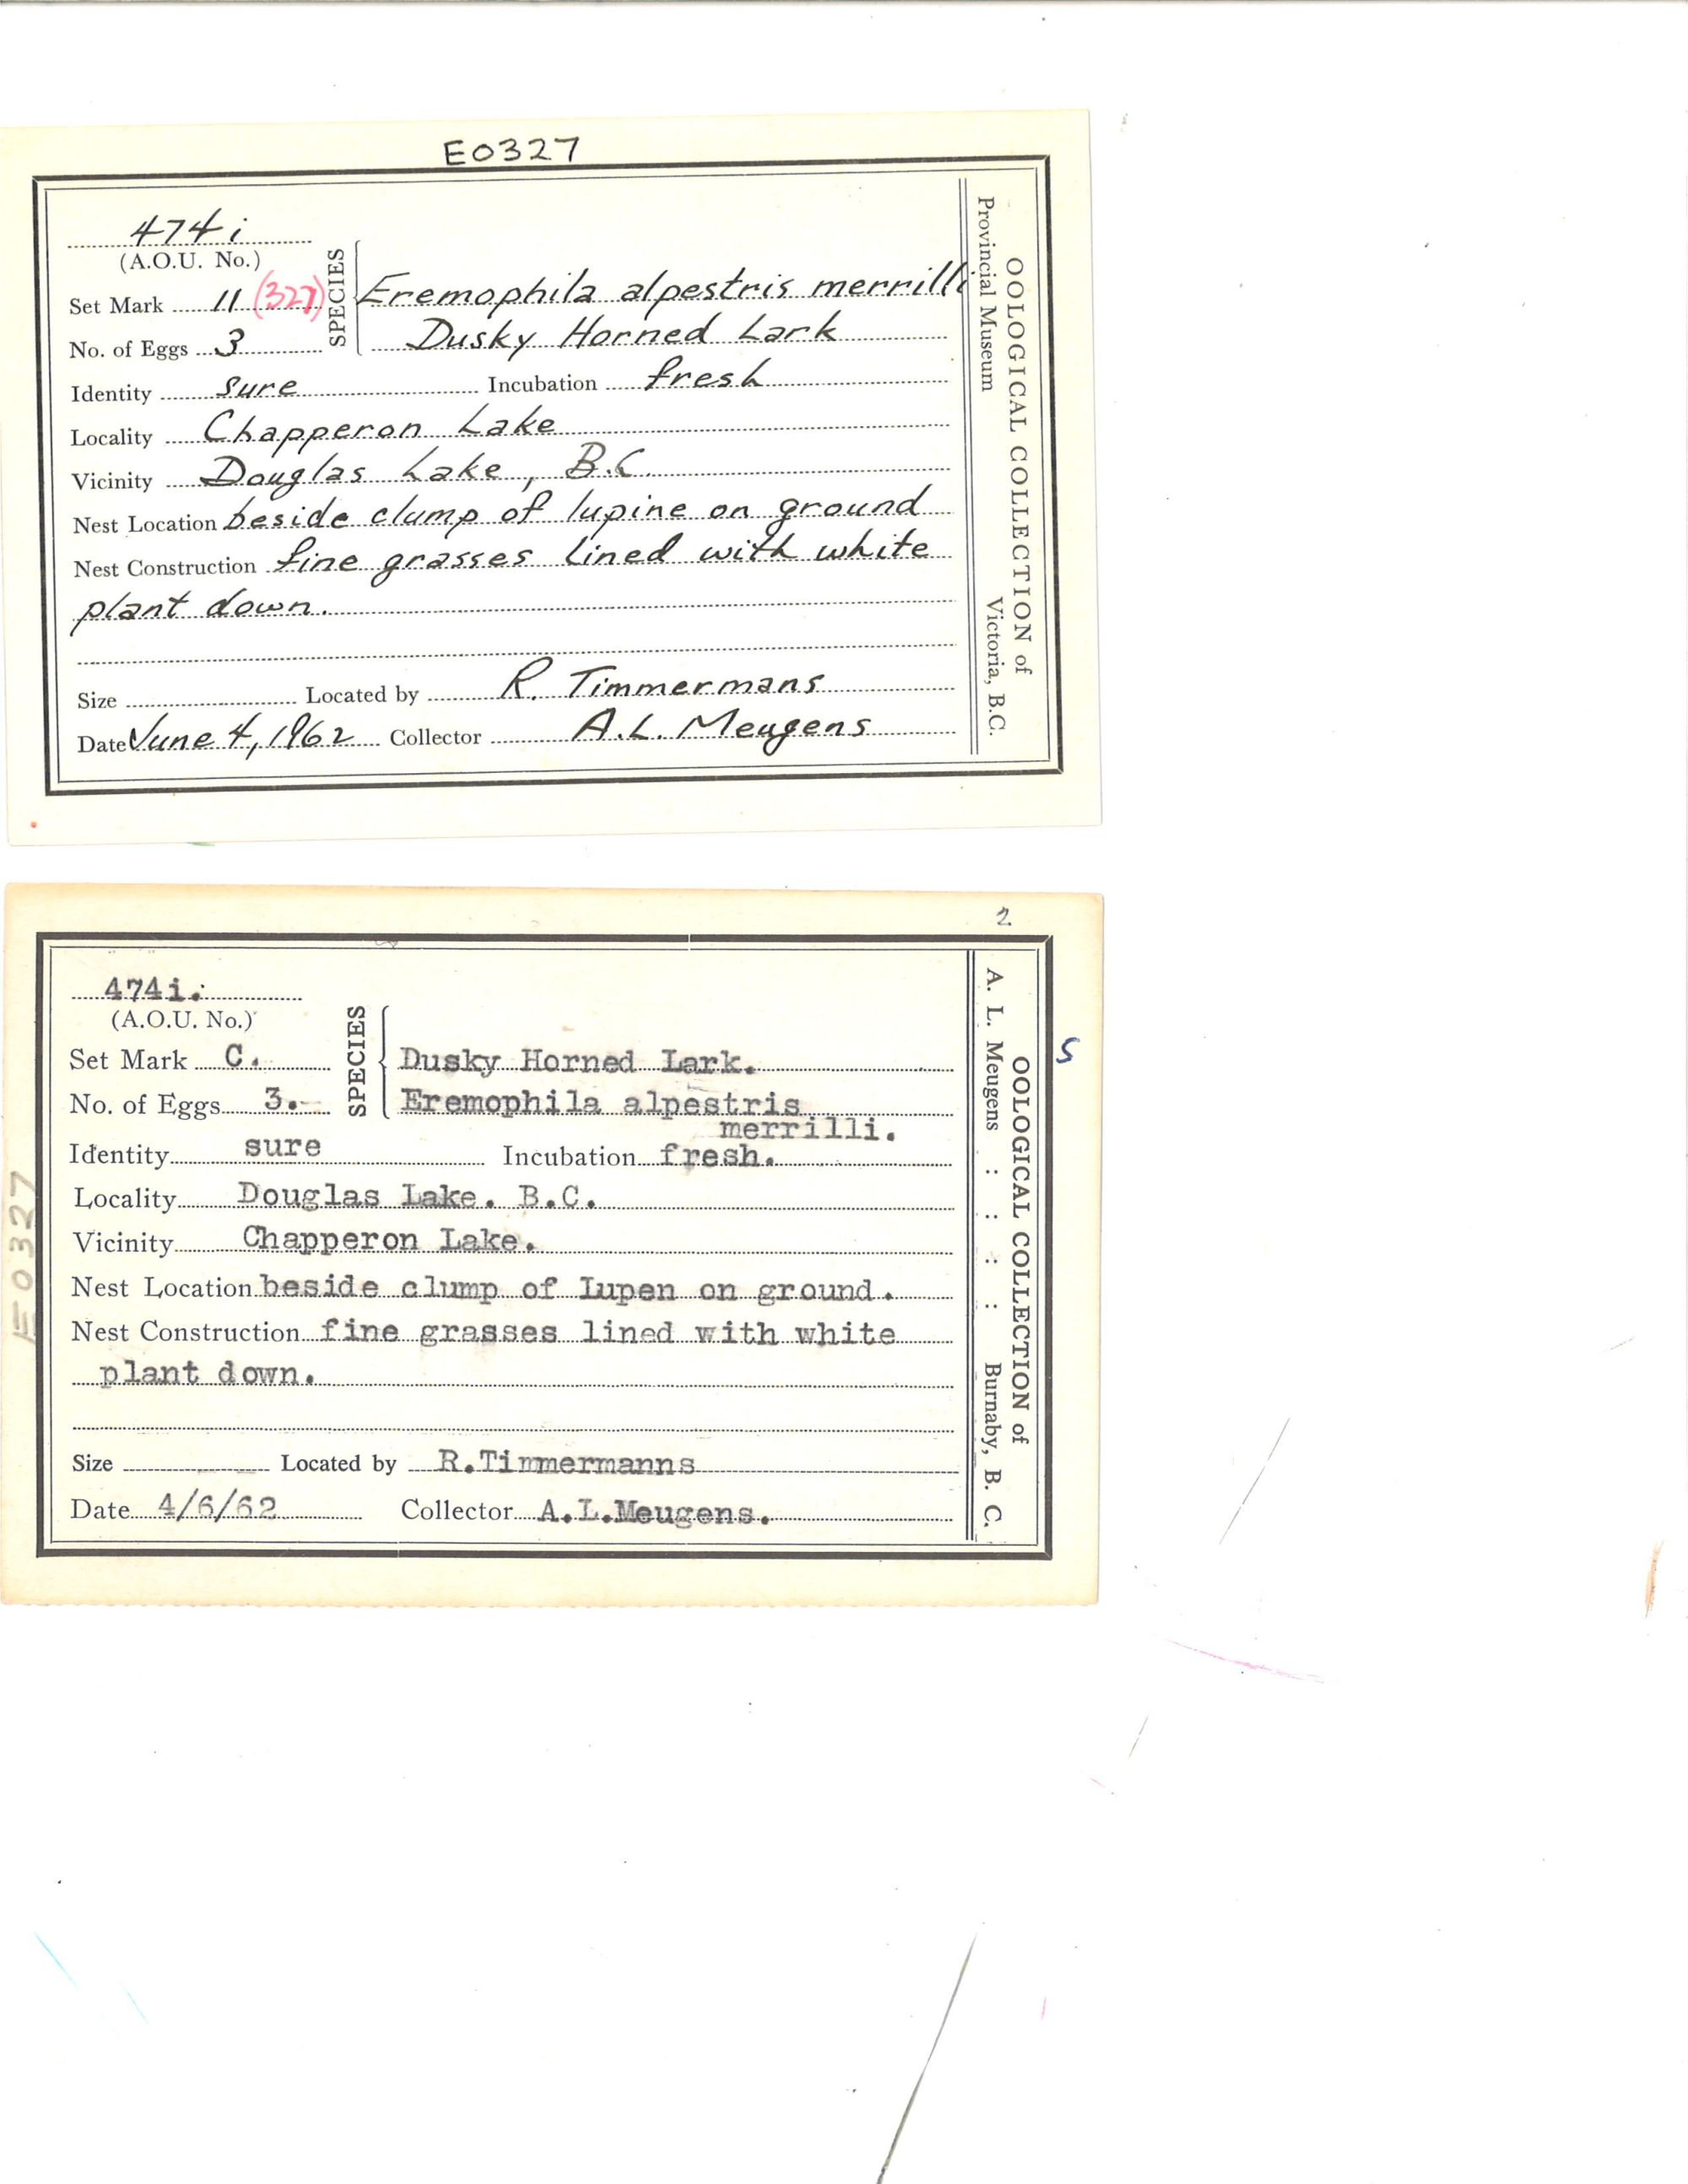 E0327
474i
(A.O.U. No.)
SPECIES
Set Mark 11 (327) Eremophila alpestris merrilli
No. of Eggs 3 Dusky Horned Lark
Identity sure Incubation fresh
Locality Chapperon Lake
Vicinity Douglas Lake, B.C.
Nest Location beside clump of lupine on ground
Nest Construction fine grasses lined with white
plant down.
Size Located by R. Timmermans
Date June 4, 1962 Collector A.L. Meugens
OOLOGICAL COLLECTION of
Provincial Museum Victoria, B.C.
2
474i.
(A.O.U. No.)
SPECIES
Set Mark C. Dusky Horned Lark.
No. of Eggs 3. Eremophila alpestris
merrilli.
Identity sure Incubation fresh.
Locality Douglas Lake. B.C.
Vicinity Chapperon Lake.
Nest Location beside clump of Lupen on ground.
Nest Construction fine grasses lined with white
plant down.
Size Located by R.Timmermanns
Date 4/6/62 Collector A.L.Meugens.
OOLOGICAL COLLECTION of
A. L. Meugens : : : : Burnaby, B. C.
S
E0327